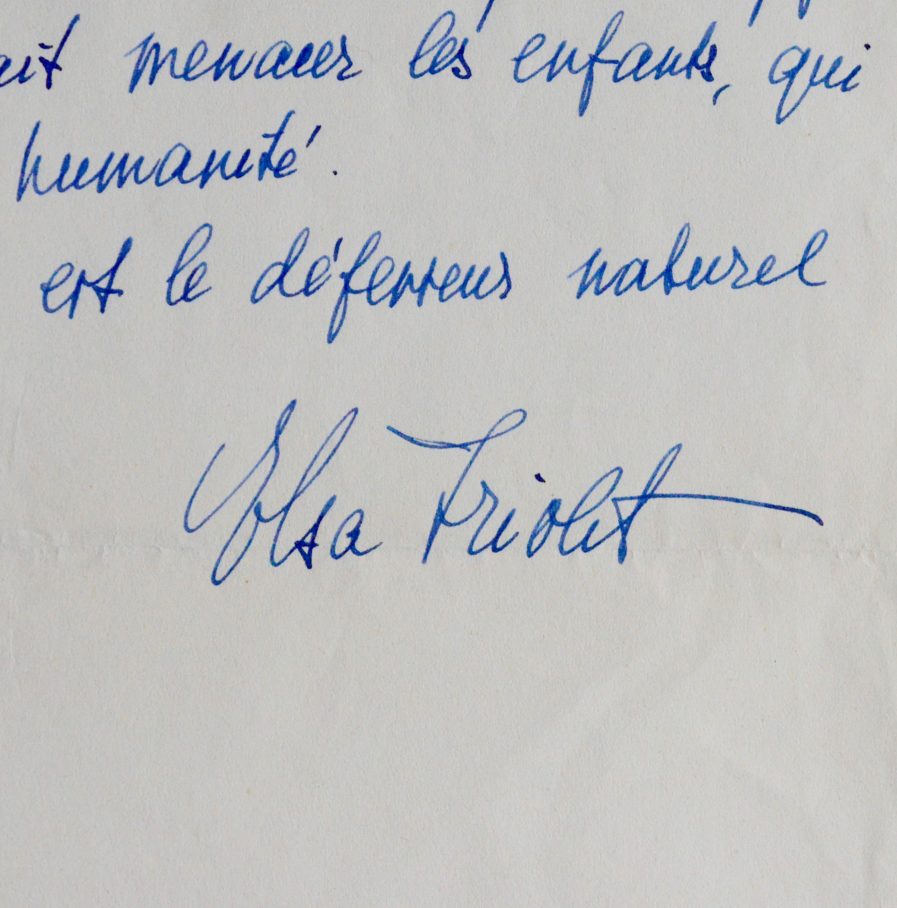 ait menacer les enfants, qui
humanité.
est le défenseur naturel
Elsa Triolet